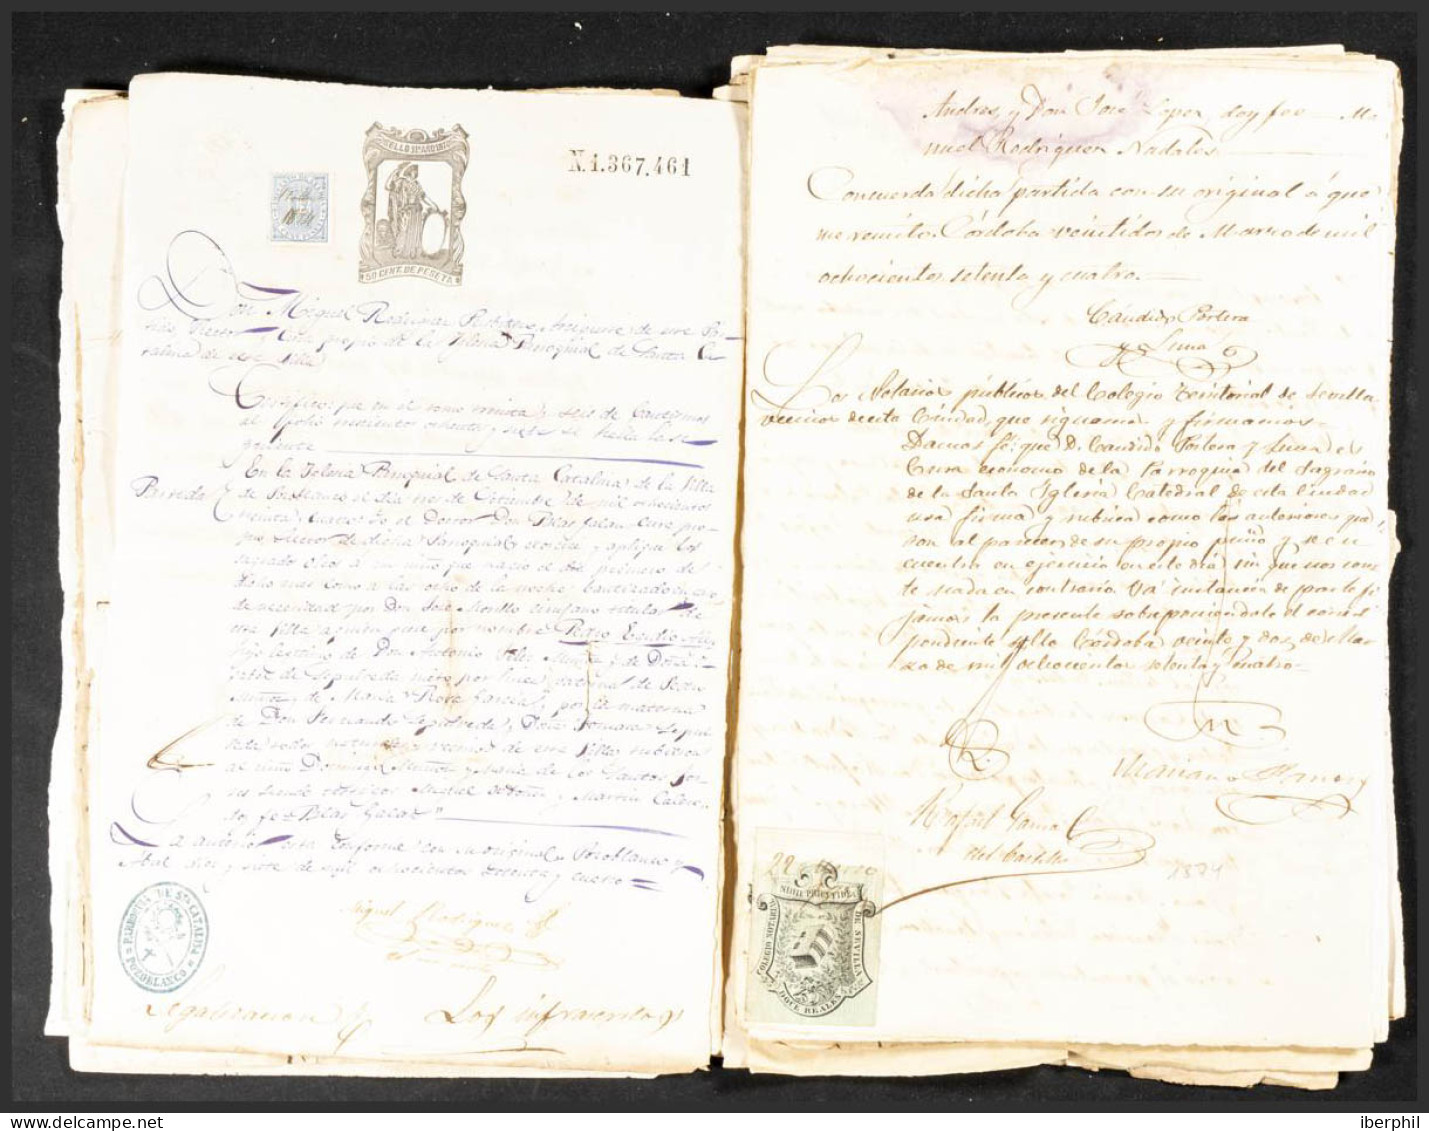 SELLO 11º AÑO 1874
N.1.367.461
1874
50 CENT. DE PESETA
Don Miguel Rodriguez
propio de la Iglesia Parroquial de Santa Ca
talina de esta Villa
Certifico: que en el tomo treinta y seis de bautismos
al folio trecientos ochenta y siete se halla la si
guiente
Partida
En la Iglesia Parroquial de Santa Catalina de la Villa
de Pozoblanco el dia tres de de mil ochocientos
Yo el Doctor Don Blas Galan cura pro
pio Rector de dicha Parroquial, y aplique los
sagrados oleos a un niño que nacio el dia primero del
dicho mes como a las ocho de la noche bautizado en caso
de necesidad por Don José Morillo cirujano titular de
esta Villa a quien puse por nombre Pedro Emilio
hijo legitimo de Don Antonio Muñoz y de Doña
de Sepulveda nieto por linea paternal de Pedro
Muñoz y de Maria Rosa Garcia, por la materna
de Don Fernando Sepulveda y Doña
todos naturales y vecinos de esta Villa
al niño Muñoz y Maria de los Santos
siendo testigos Miguel y Martin
doy fe = Blas Galan"
La anterior esta conforme con su original Pozoblanco y
Abril diez y siete de mil ochocientos setenta y cuatro =
Miguel Rodriguez
PARROQUIA DE Sta CATALINA
POZOBLANCO
Legalizacion
Los infrascritos
Andres, y Don José Lopez, doy fee Ma
nuel Rodriguez Nadales
Concuerda dicha partida con su original á que
me remito. Córdoba veintidos de Marzo de mil
ochocientos setenta y cuatro.
Cándido Portera
y Luna
Los Notarios públicos del Colegio Territorial de Sevilla
vecinos de esta Ciudad, que signamos y firmamos
Damos fé: que D. Candido Portera y Luna es
Cura economo de la Parroquia del Sagrario
de la Santa Iglesia Catedral de esta Ciudad
usa firma y rubrica como los anteriores que
son al parecer de su propio puño y se en
cuentra en ejercicio en este dia sin que nos cons
te nada en contrario. Y á instancia de parte fi
jamos la presente sobreponiendole el corres
pondiente sello Córdoba veinte y dos de Mar
zo de mil ochocientos setenta y cuatro
Mariano
Rafael Garcia
del Castillo
1874
22 Marzo
NIHIL PRIUS FIDE
COLEGIO NOTARIAL
DE SEVILLA
DOCE REALES
iberphil